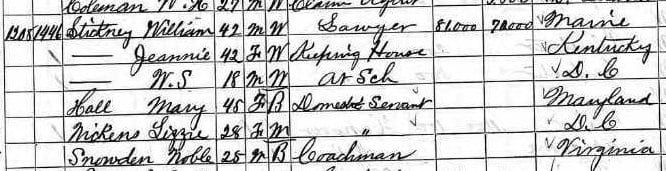 Coleman W. H 27 M W Claim Agent
1208 1446 Stickney William 42 M W Lawyer 81,000 70,000 Maine
— Jeannie 42 F W Keeping House Kentucky
— W.S. 18 M W At Sch D. C
Hall Mary 45 F B Domestic Servant Maryland
Nickens Lizzie 28 F M " D. C
Snowden Noble 25 M B Coachman Virginia